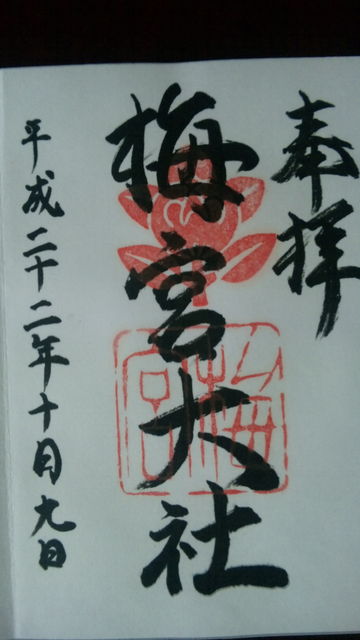 奉拝
梅宮大社
平成二十二年十月九日
梅宮